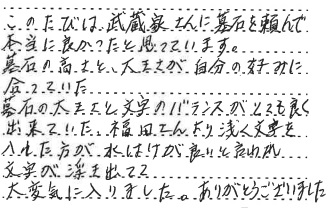 このたびは、武蔵家さんに墓石を頼んで
本当に良かったと思っています。
墓石の高さと、大きさが自分の好みに
合っていた
墓石の大きさと文字のバランスがとても良く
出来ていた、福田さんより浅く文字を
入れた方が水はけが良いと言われ
文字が浮き出てて
大変気に入りました。ありがとうございました